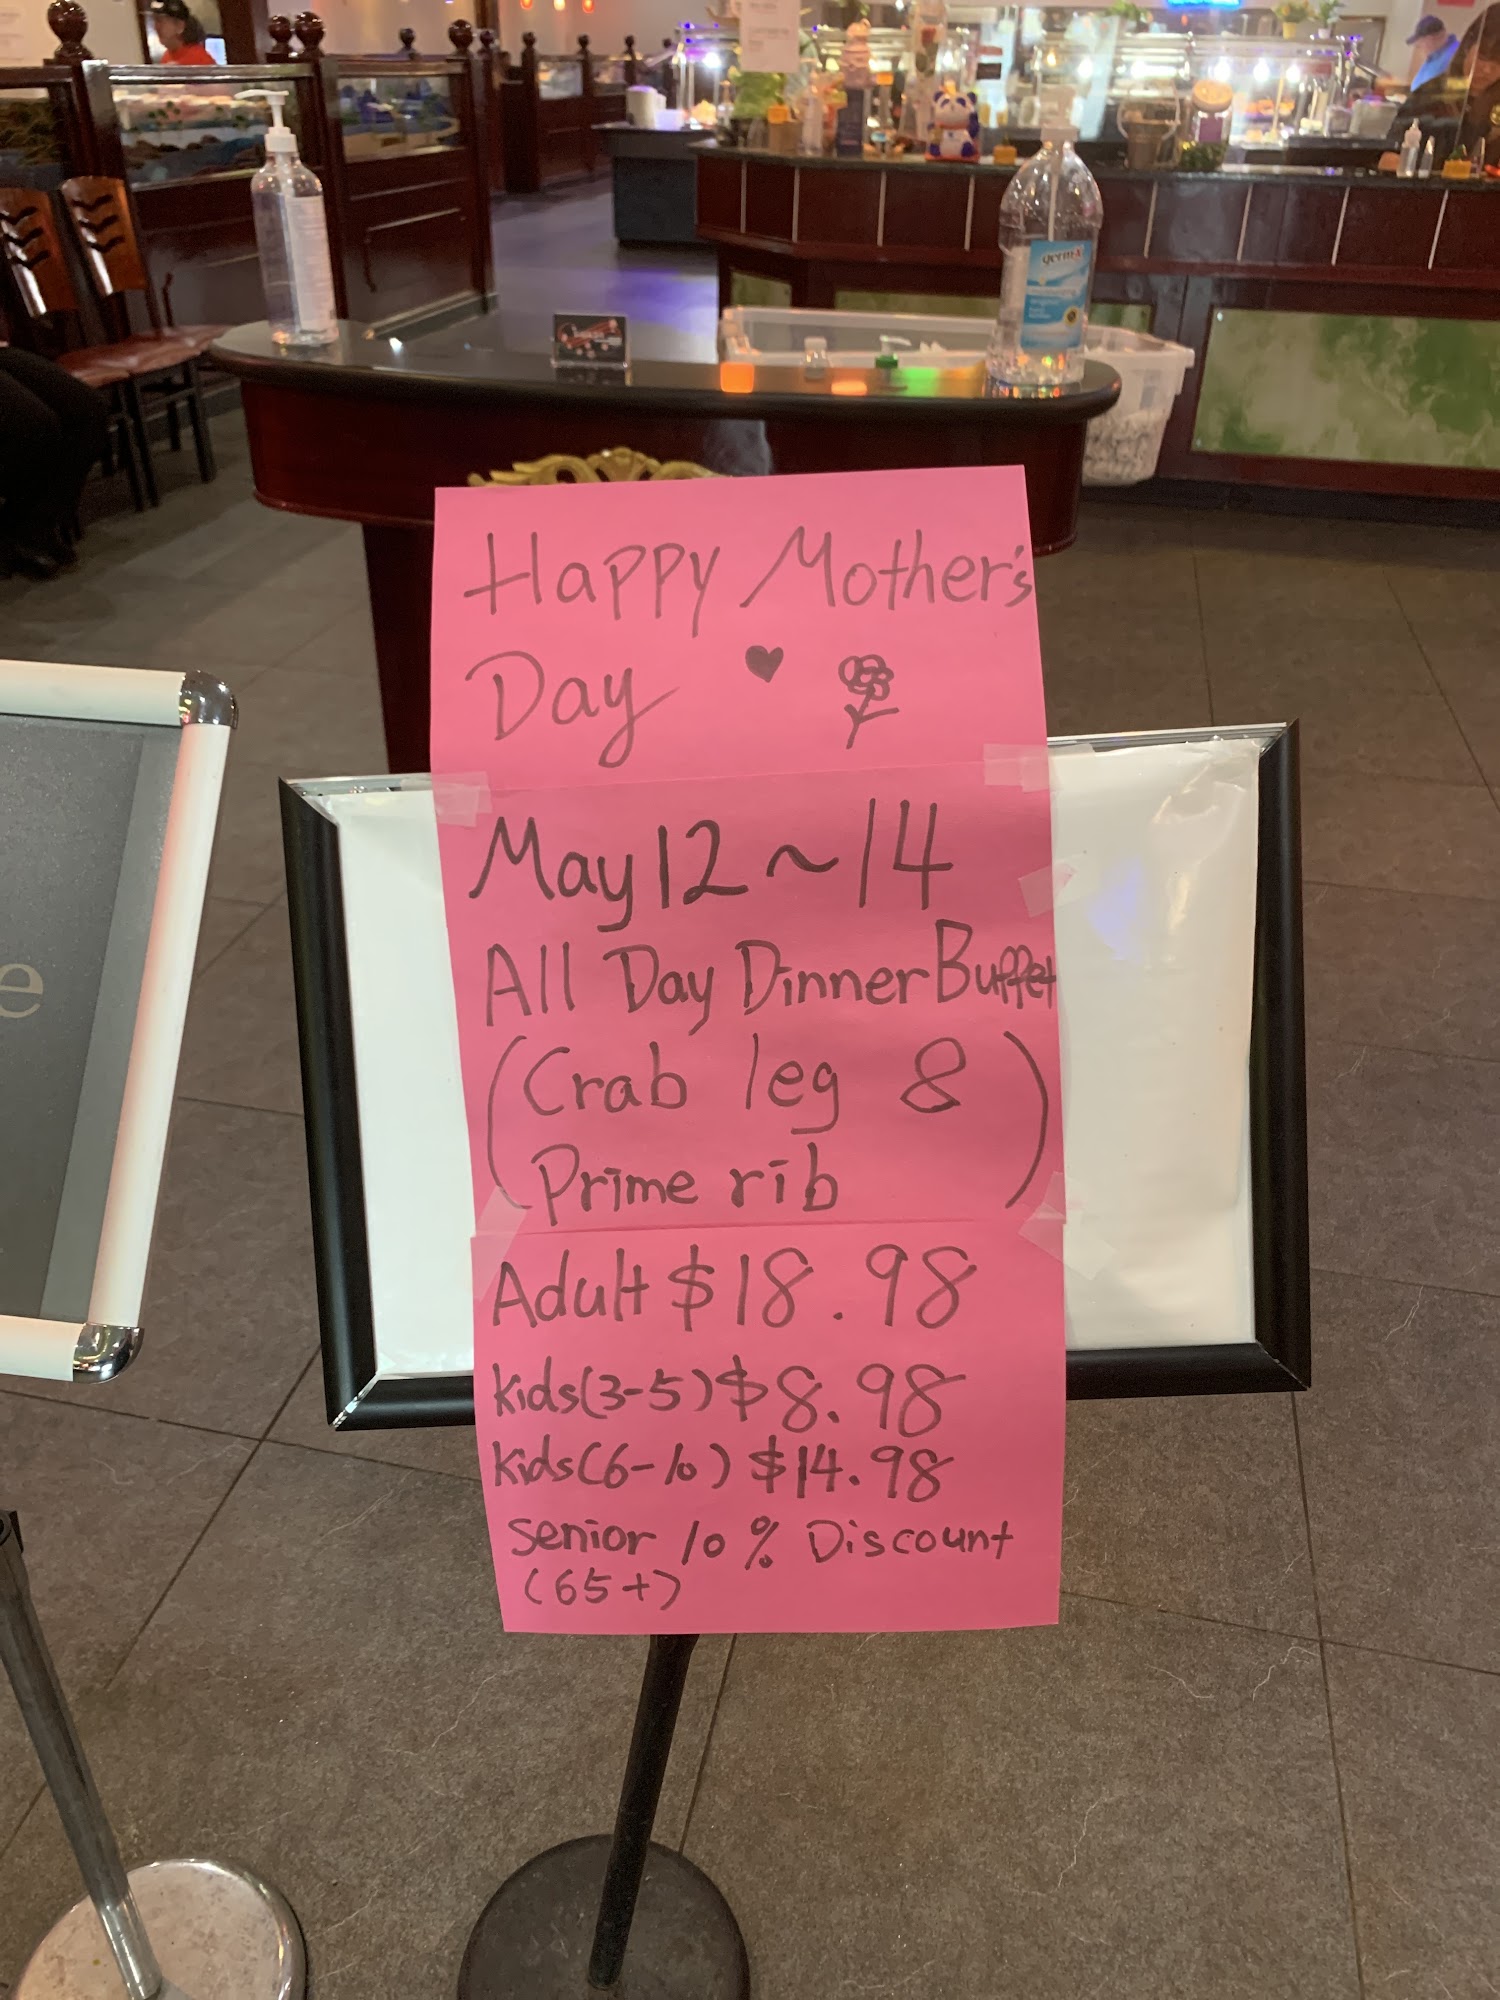 Happy Mother's
Day
May 12~14
All Day Dinner Buffet
(Crab leg &
Prime rib)
Adult $18.98
Kids(3-5) $8.98
Kids(6-10) $14.98
Senior 10% Discount
(65+)
germ-x
e